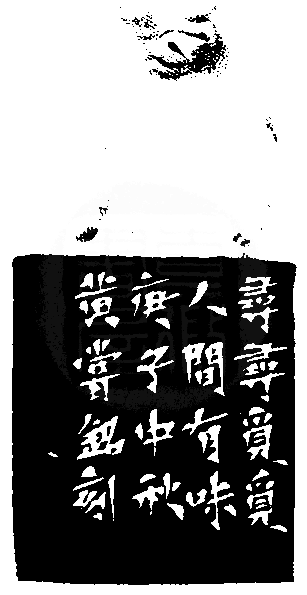 尋尋覓覓
人間有味
庚子中秋
黄嘗銘刻